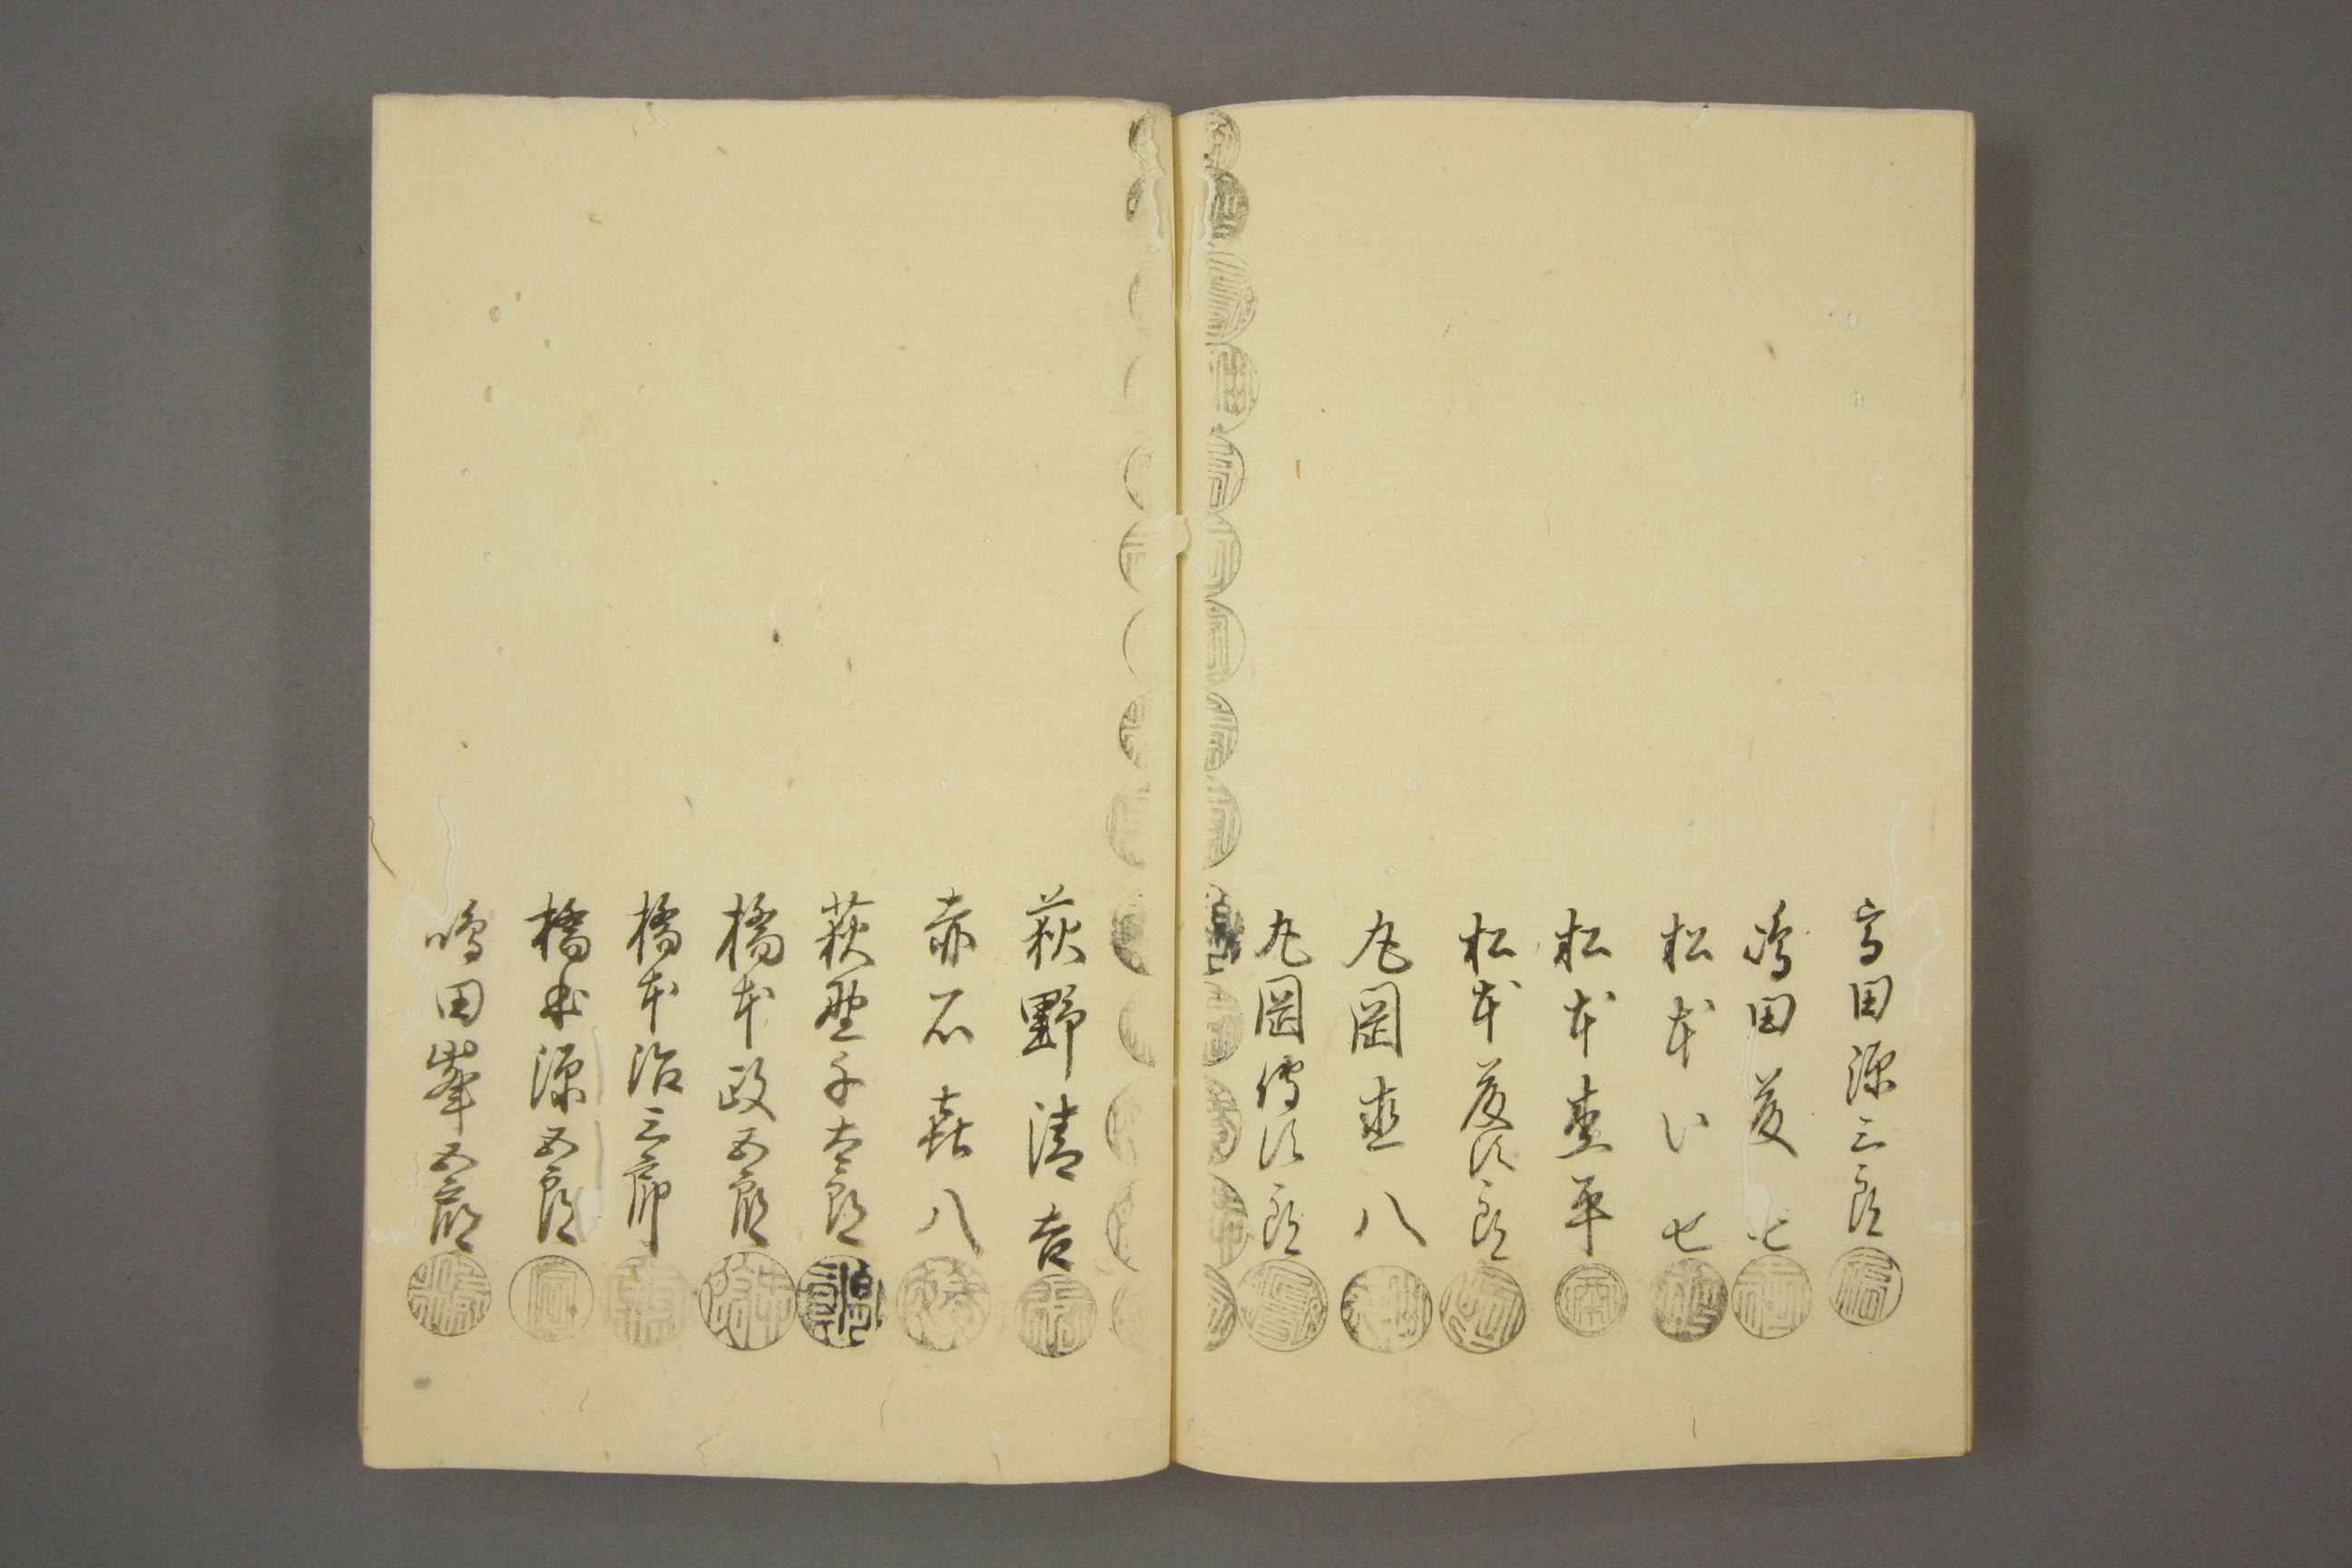 高田源三郎
嶋田茂七
松本 七
松本 平
松本茂次郎
丸岡直八
丸岡傳次郎
萩野清吉
赤石喜八
萩野千太郎
橋本政五郎
橋本治三郎
橋本源五郎
嶋田峯五郎